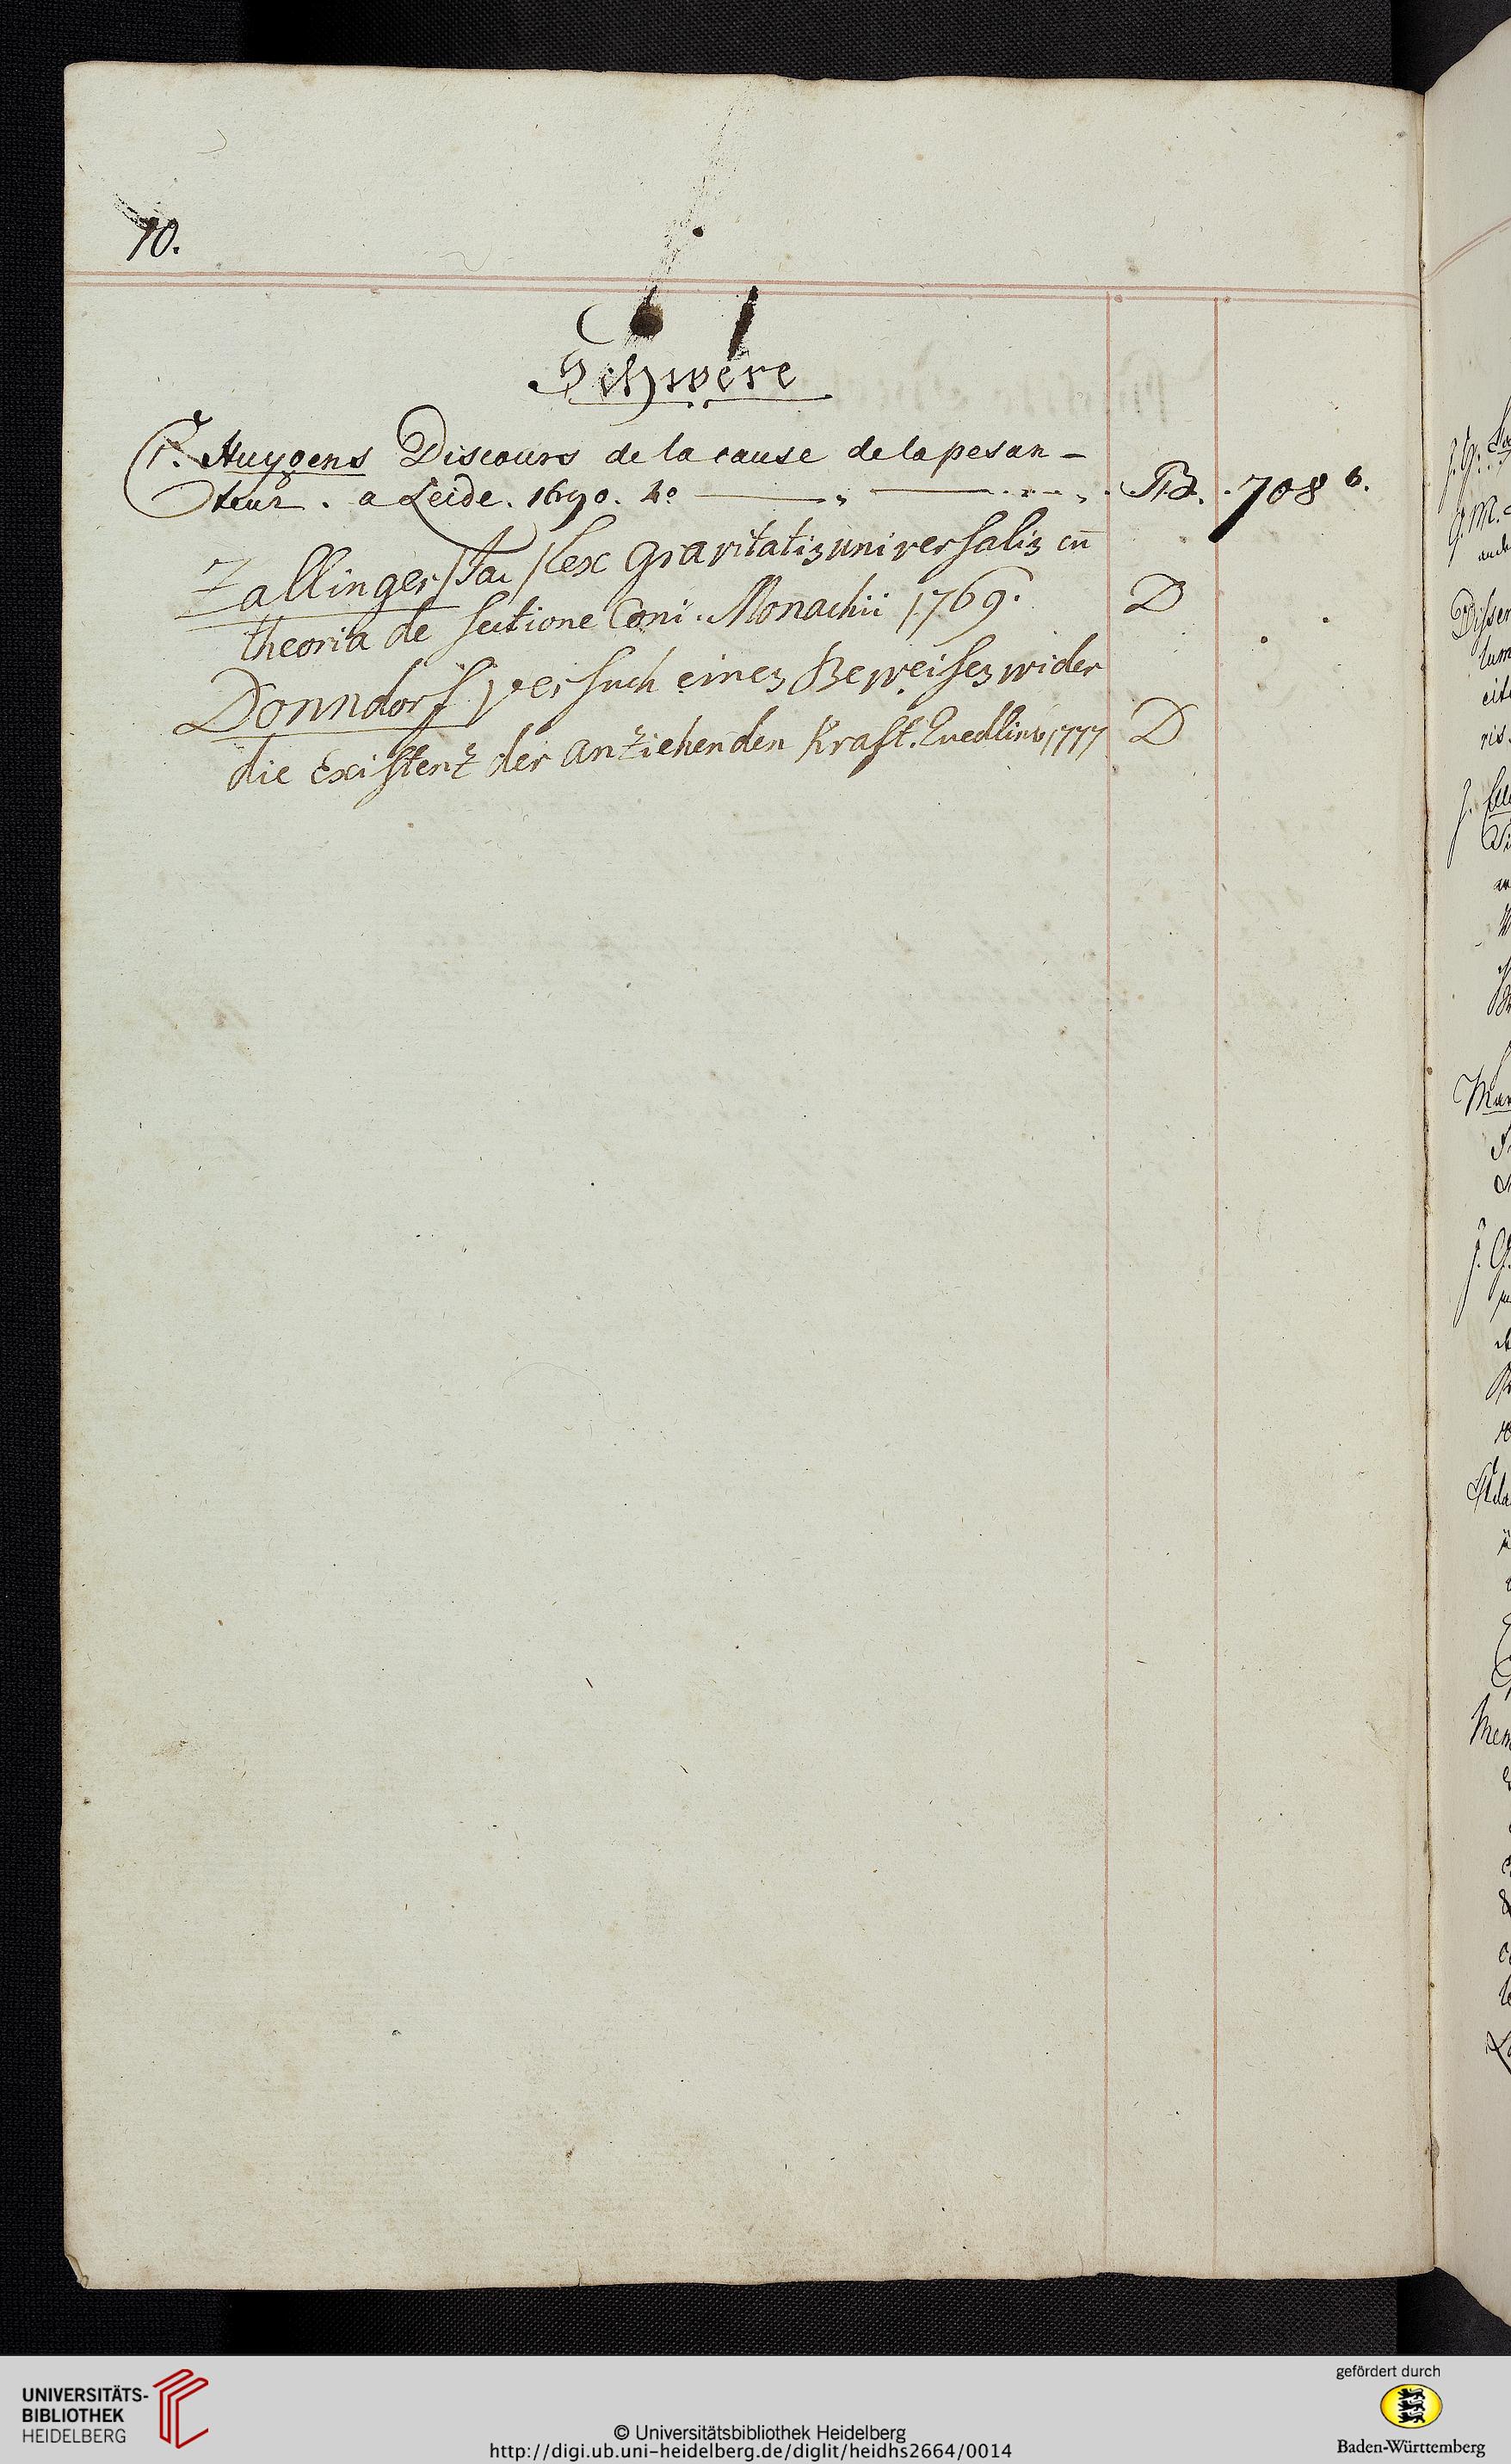 10.
Schwere
C. Huygens Discours de la cause de la pesan-
teur. a Leide. 1690. 4o 708 b.
Zallinger /Jac/ lex gravitatis universalis cū
theoria de sectione Coni. Monachii 1769. D
Donndorf versuch eines Beweises wider
die Existenz der anziehenden Kraft. Quedlinb 1777 D
UNIVERSITÄTS-
BIBLIOTHEK
HEIDELBERG
© Universitätsbibliothek Heidelberg
http://digi.ub.uni-heidelberg.de/diglit/heidhs2664/0014
gefördert durch
Baden-Württemberg